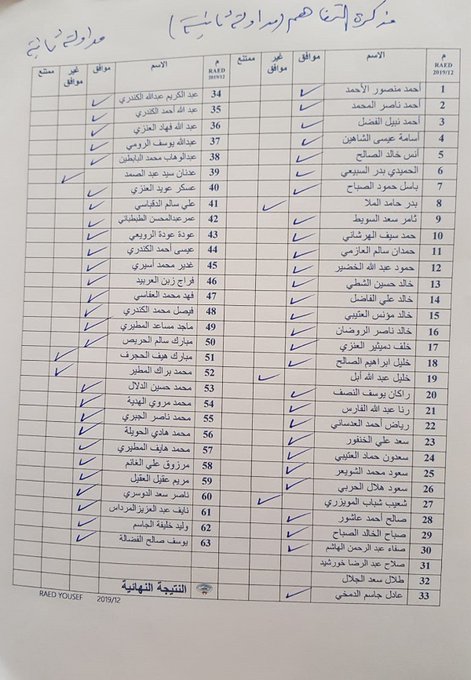 مذكرة التفاهم (مداولة ثانية)
مداولة ثانية
م RAED 2019/12 الاسم موافق غير موافق ممتنع
1 أحمد منصور الأحمد ✓
2 أحمد ناصر المحمد ✓
3 أحمد نبيل الفضل ✓
4 أسامة عيسى الشاهين ✓
5 أنس خالد الصالح ✓
6 الحميدي بدر السبيعي ✓
7 باسل حمود الصباح ✓
8 بدر حامد الملا ✓
9 ثامر سعد السويط ✓
10 حمد سيف الهرشاني ✓
11 حمدان سالم العازمي ✓
12 حمود عبد الله الخضير ✓
13 خالد حسين الشطي ✓
14 خالد علي الفاضل ✓
15 خالد مؤنس العتيبي ✓
16 خالد ناصر الروضان ✓
17 خلف دميثير العنزي ✓
18 خليل ابراهيم الصالح ✓
19 خليل عبد الله أبل ✓
20 راكان يوسف النصف ✓
21 رنا عبد الله الفارس ✓
22 رياض أحمد العدساني ✓
23 سعد علي الخنفور ✓
24 سعدون حماد العتيبي ✓
25 سعود محمد الشويعر ✓
26 سعود هلال الحربي ✓
27 شعيب شباب المويزري ✓
28 صالح أحمد عاشور ✓
29 صباح الخالد الصباح ✓
30 صفاء عبد الرحمن الهاشم ✓
31 صلاح عبد الرضا خورشيد
32 طلال سعد الجلال
33 عادل جاسم الدمخي ✓
م RAED 2019/12 الاسم موافق غير موافق ممتنع
34 عبد الكريم عبدالله الكندري ✓
35 عبد الله أحمد الكندري ✓
36 عبد الله فهاد العنزي ✓
37 عبدالله يوسف الرومي ✓
38 عبدالوهاب محمد البابطين ✓
39 عدنان سيد عبد الصمد ✓
40 عسكر عويد العنزي ✓
41 علي سالم الدقباسي ✓
42 عمر عبدالمحسن الطبطبائي ✓
43 عودة عودة الرويعي ✓
44 عيسى أحمد الكندري ✓
45 غدير محمد أسيري ✓
46 فراج زبن العربيد ✓
47 فهد محمد العفاسي ✓
48 فيصل محمد الكندري ✓
49 ماجد مساعد المطيري ✓
50 مبارك سالم الحريص ✓
51 مبارك هيف الحجرف ✓
52 محمد براك المطير ✓
53 محمد حسين الدلال ✓
54 محمد مروي الهدية ✓
55 محمد ناصر الجبري ✓
56 محمد هادي الحويلة ✓
57 محمد هايف المطيري ✓
58 مرزوق علي الغانم ✓
59 مريم عقيل العقيل ✓
60 ناصر سعد الدوسري ✓
61 نايف عبد العزيز المرداس ✓
62 وليد خليفة الجاسم ✓
63 يوسف صالح الفضالة ✓
النتيجة النهائية
RAED YOUSEF 2019/12